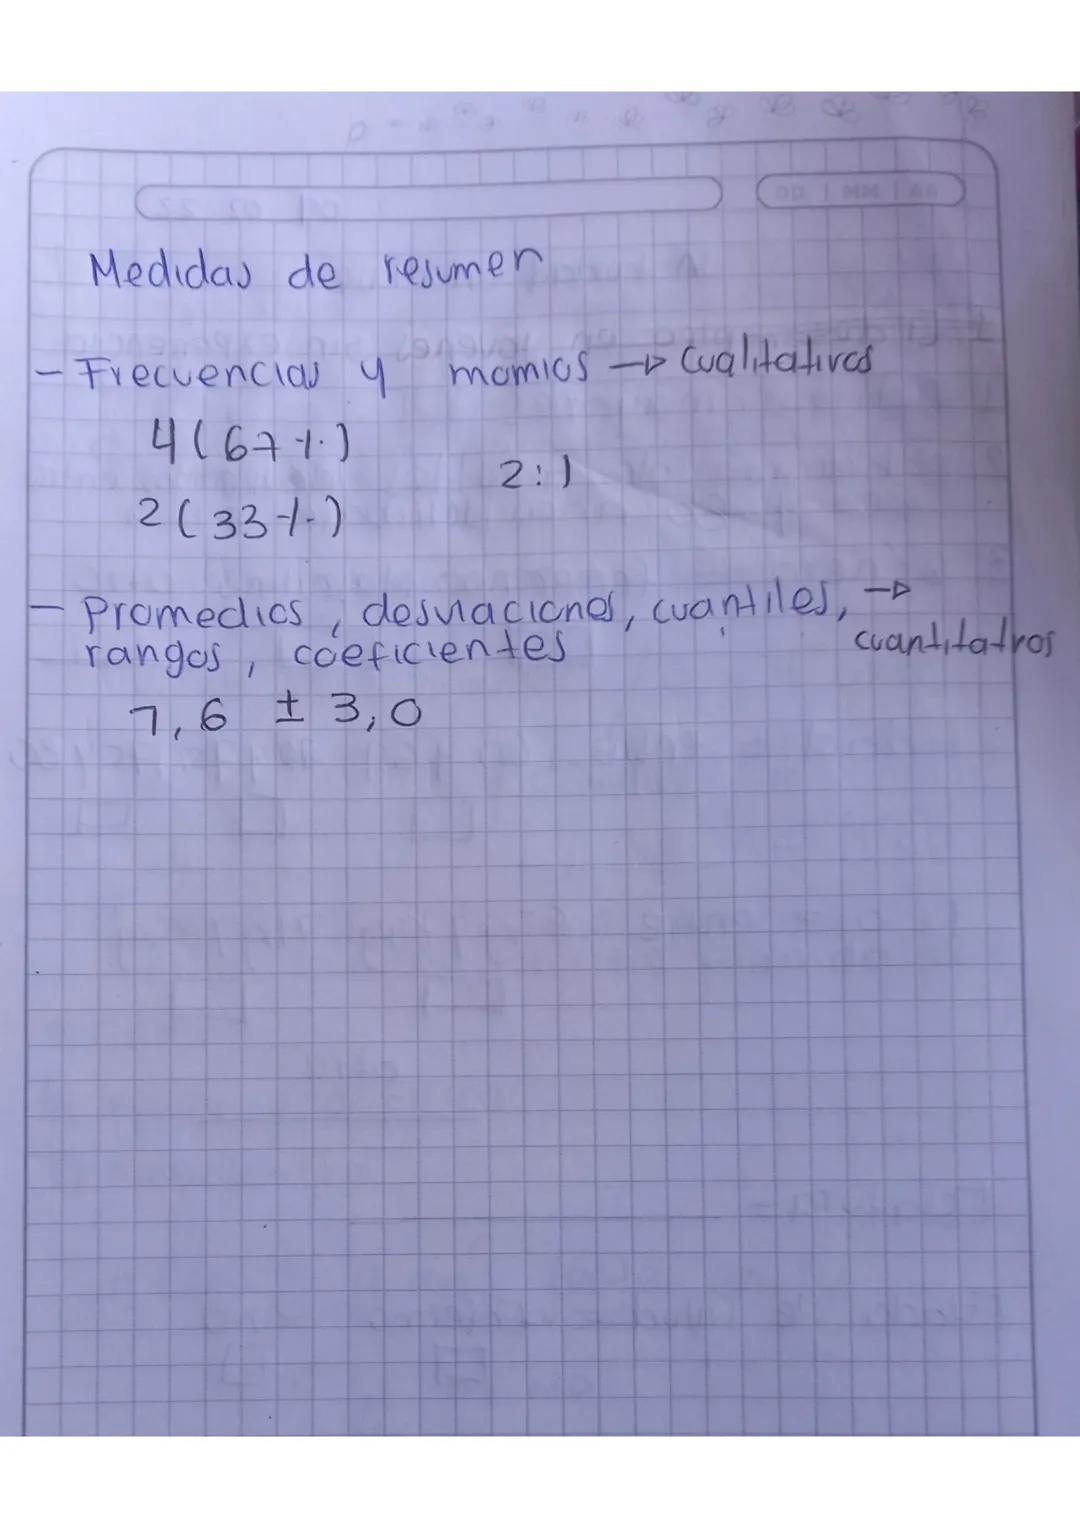 Medidas de resumen
- Frecuencias y momios → Cualitativos
4 (67 %)
2:1
2 (33 %)
- Promedios, desviaciones, cuantiles, →
rangos, coeficientes cuantitativos
7,6 ± 3,0